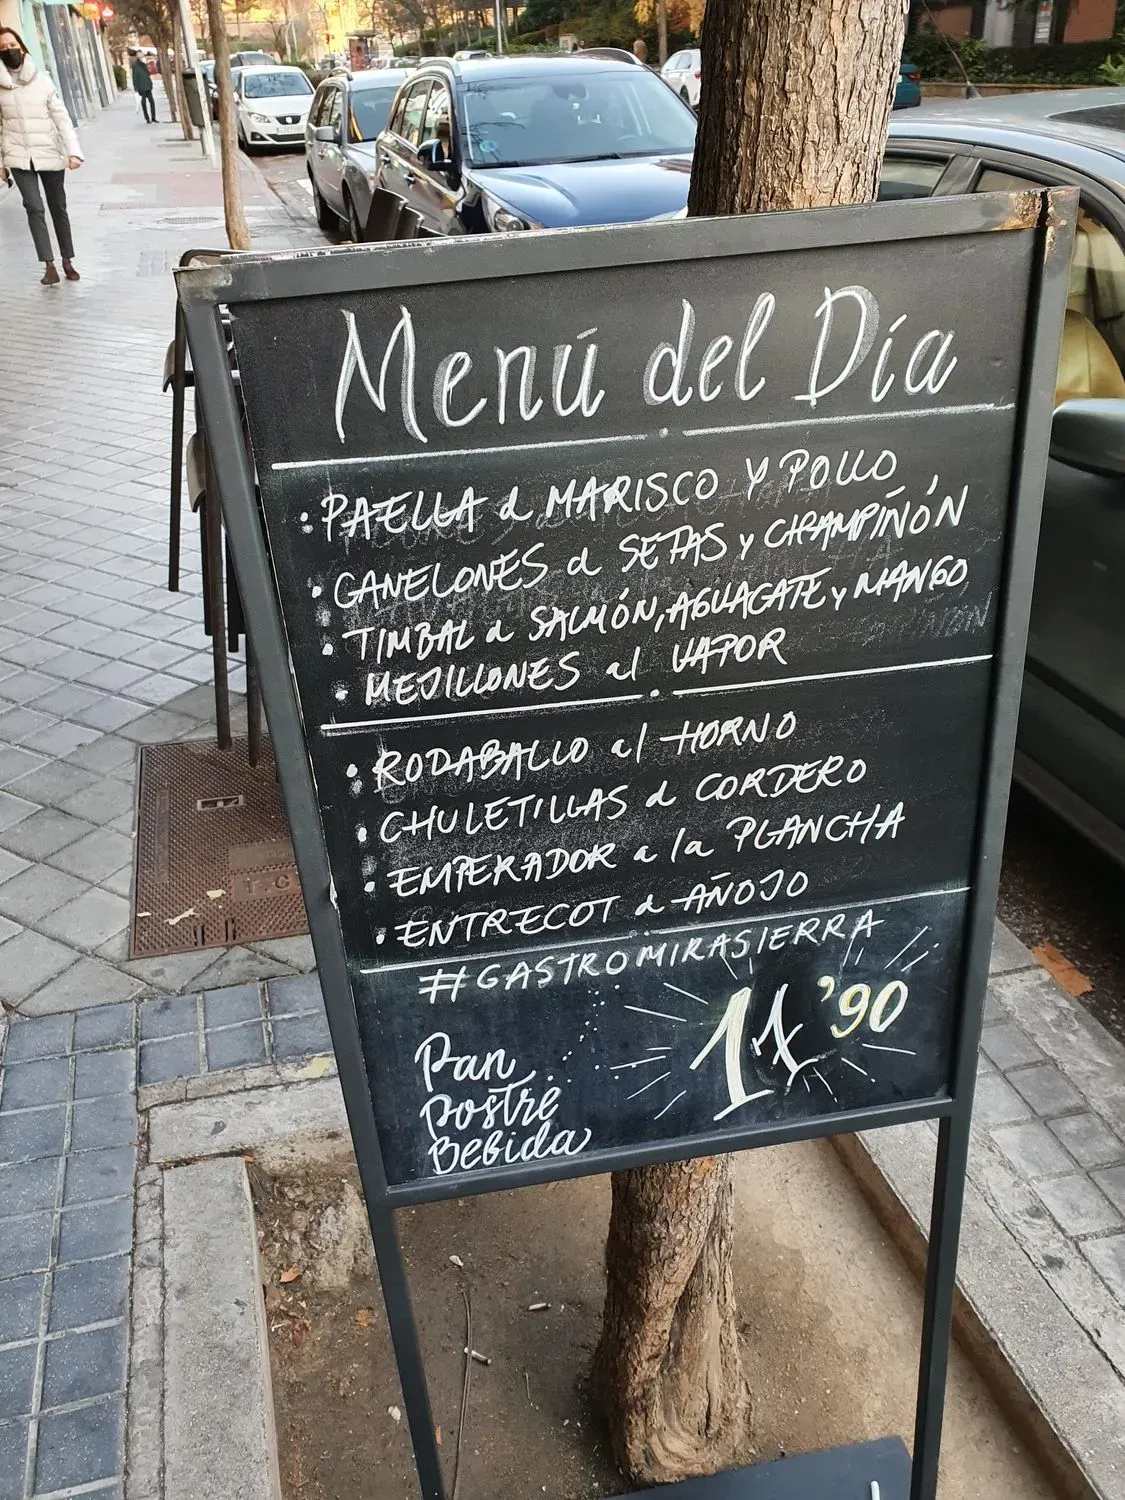 Menú del Día
• PAELLA d MARISCO Y POLLO
• CANELONES d SETAS y CHAMPIÑÓN
• TIMBAL d SALMÓN, AGUACATE y MANGO
• MEJILLONES al VAPOR
• RODABALLO al HORNO
• CHULETILLAS d CORDERO
• EMPERADOR a la PLANCHA
• ENTRECOT d AÑOJO
#GASTROMIRASIERRA
11'90
Pan
Postre
Bebida